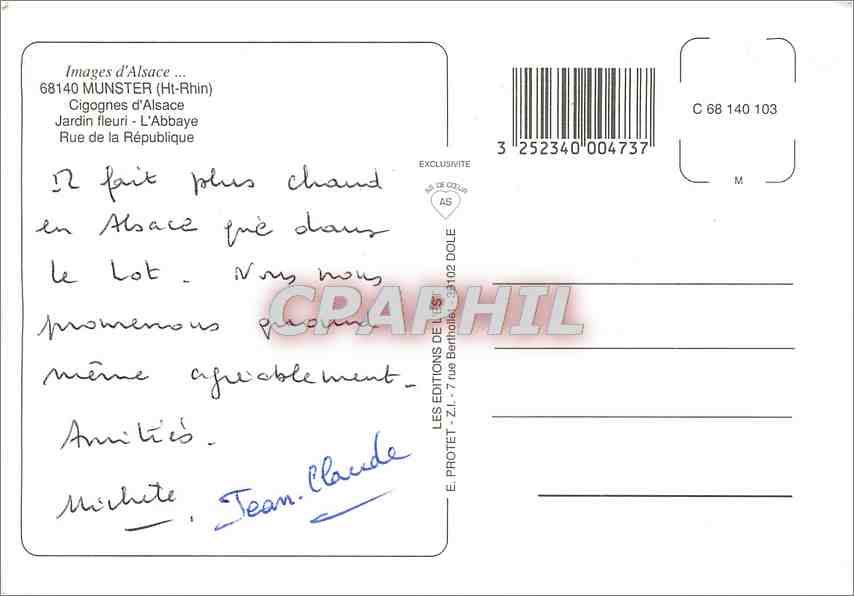 Images d'Alsace ...
68140 MUNSTER (Ht-Rhin)
Cigognes d'Alsace
Jardin fleuri - L'Abbaye
Rue de la République
Il fait plus chaud
en Alsace que dans
le Lot. Nous nous
promenons quand
même agréablement.
Amitiés.
Michèle, Jean-Claude
EXCLUSIVITE
AS DE CŒUR
AS
LES EDITIONS DE L'EST
E. PROTET - Z.I. - 7 rue Berthollet - 39102 DOLE
3 252340 004737
C 68 140 103
M
CPAPHIL